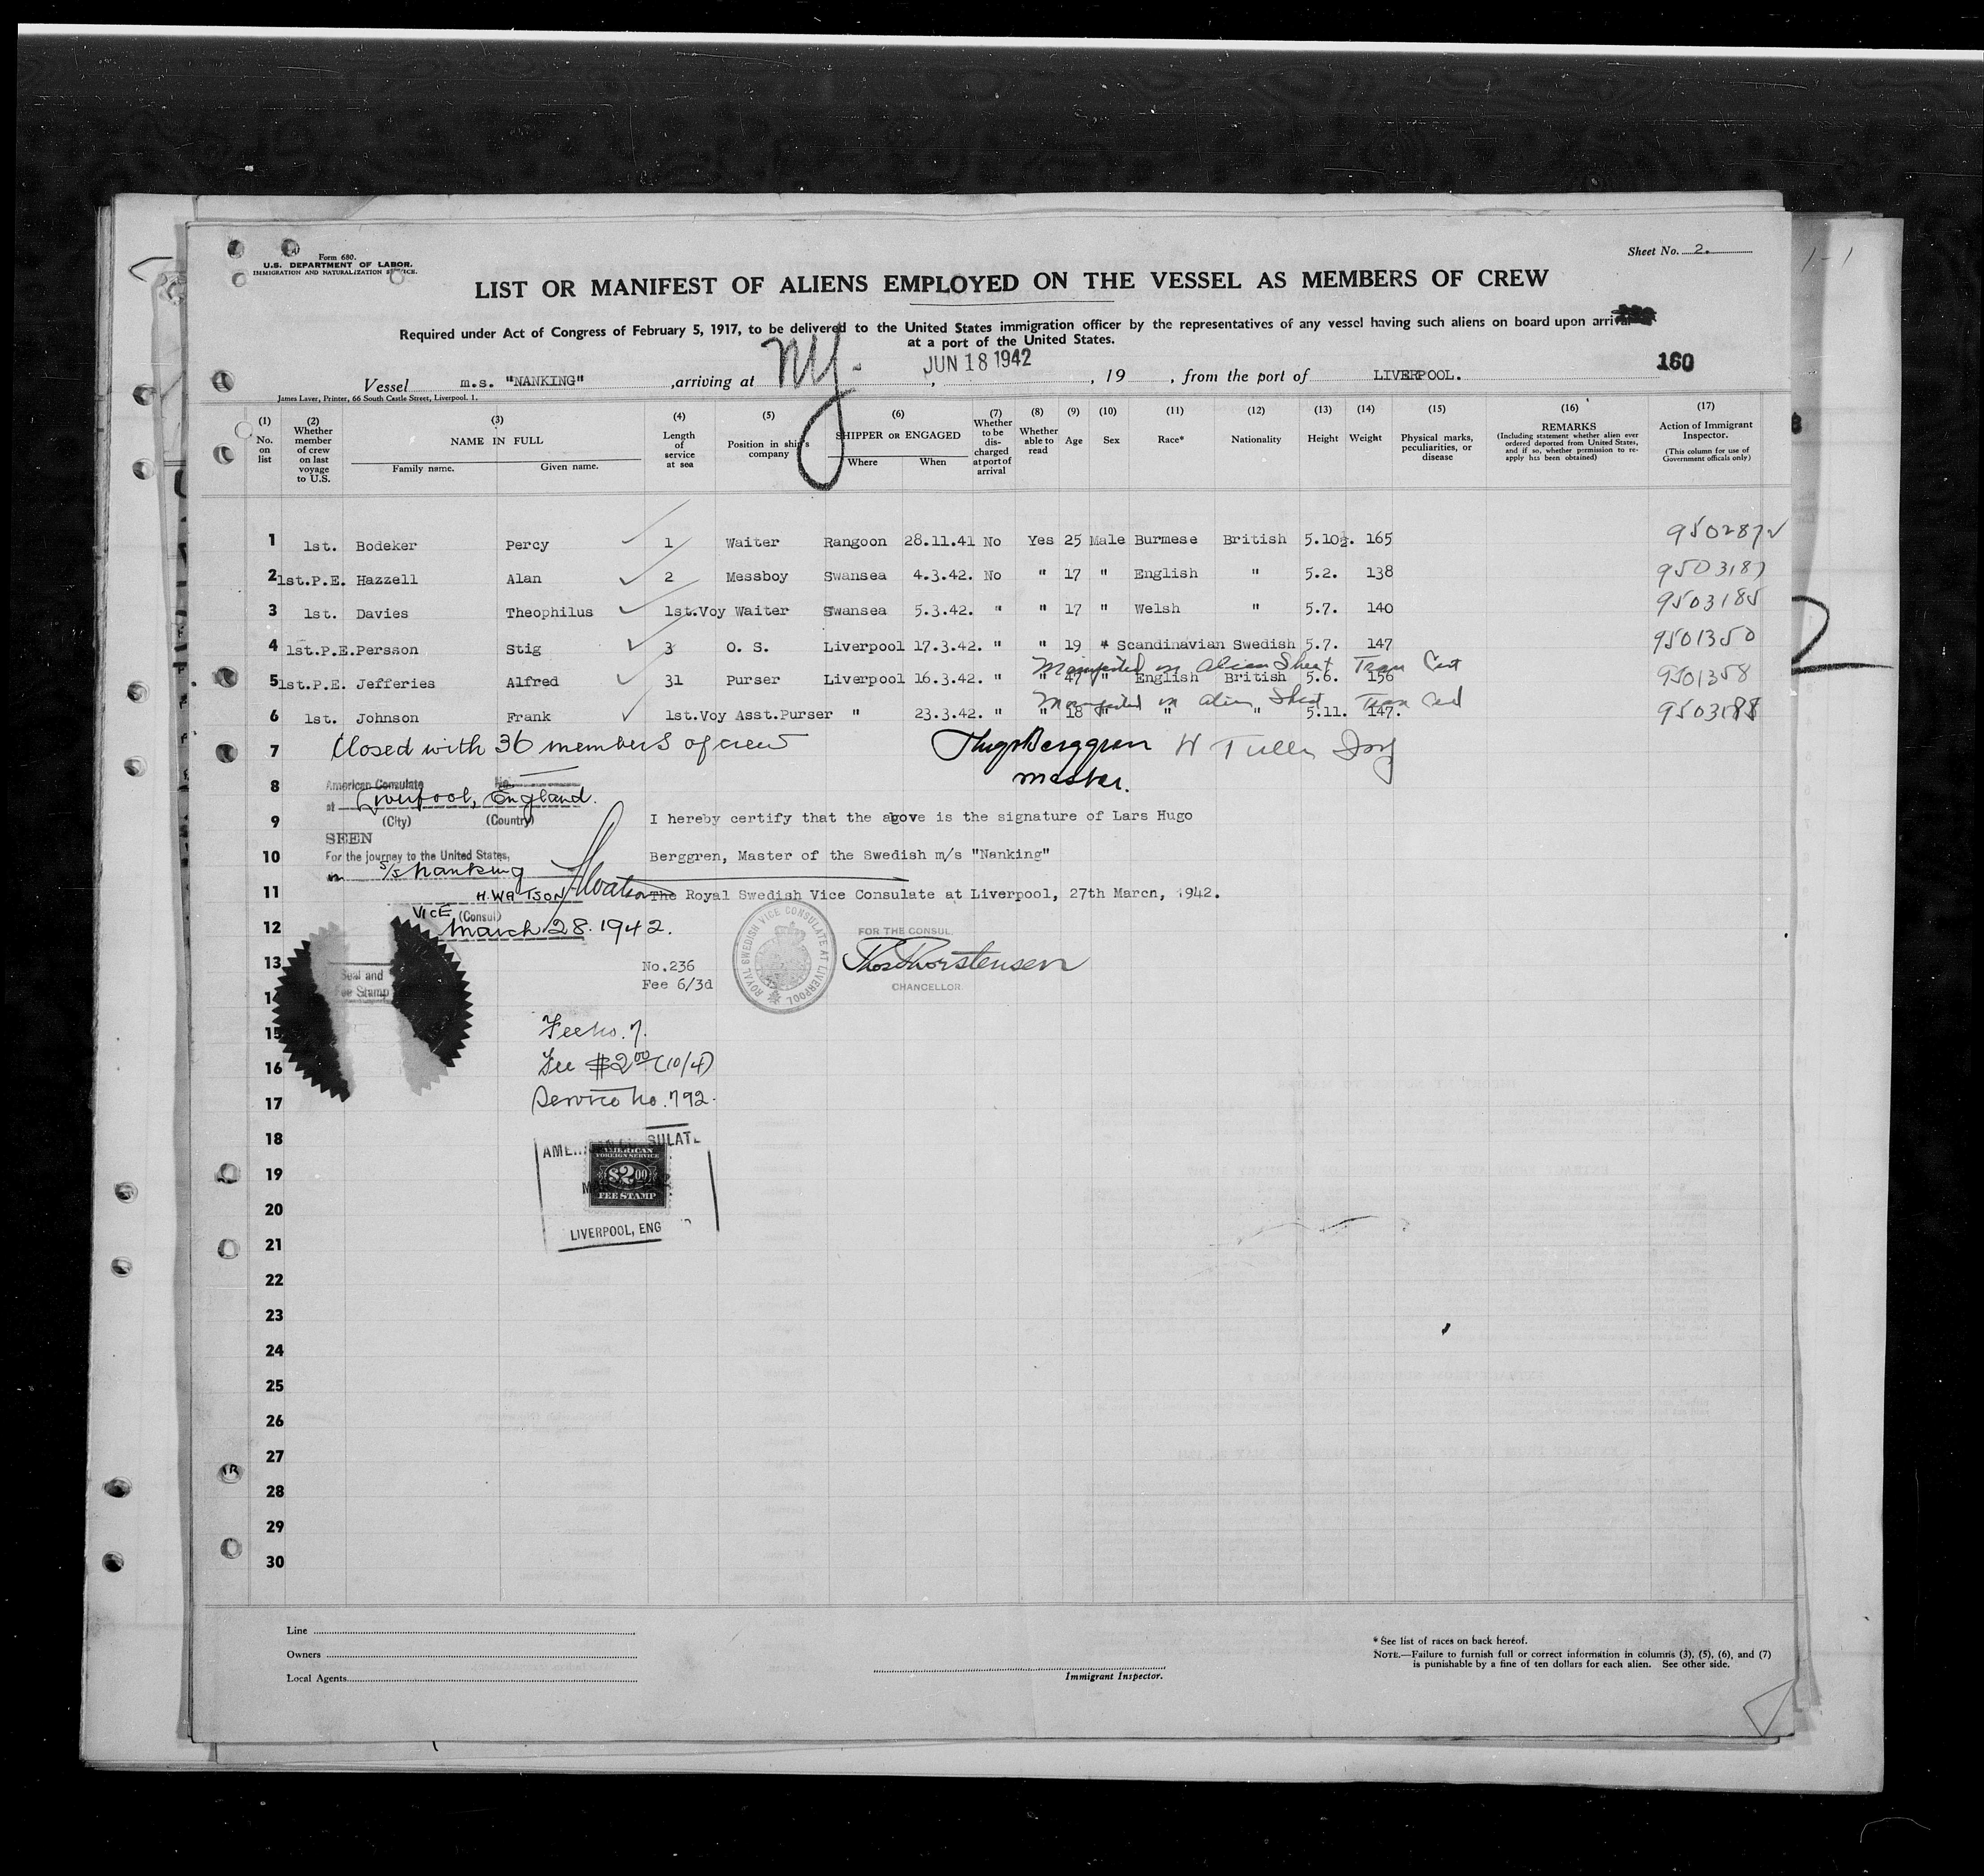 Form 680.
U.S. DEPARTMENT OF LABOR.
IMMIGRATION AND NATURALIZATION SERVICE.
Sheet No. 2.
LIST OR MANIFEST OF ALIENS EMPLOYED ON THE VESSEL AS MEMBERS OF CREW
Required under Act of Congress of February 5, 1917, to be delivered to the United States immigration officer by the representatives of any vessel having such aliens on board upon arrival
at a port of the United States.
160
Vessel m.s. "NANKING" ,arriving at NY. , JUN 18 1942 , 19 , from the port of LIVERPOOL.
James Laver, Printer, 66 South Castle Street, Liverpool. 1.
(1) No. on list
(2) Whether member of crew on last voyage to U.S.
(3) NAME IN FULL Family name. Given name.
(4) Length of service at sea
(5) Position in ship's company
(6) SHIPPER OR ENGAGED Where When
(7) Whether to be discharged at port of arrival
(8) Whether able to read
(9) Age
(10) Sex
(11) Race*
(12) Nationality
(13) Height
(14) Weight
(15) Physical marks, peculiarities, or disease
(16) REMARKS (Including statement whether alien ever ordered deported from United States, and if so, whether permission to re-apply has been obtained)
(17) Action of Immigrant Inspector. (This column for use of Government officals only)
1 1st. Bodeker Percy 1 Waiter Rangoon 28.11.41 No Yes 25 Male Burmese British 5.10½. 165 950287
2 1st.P.E. Hazzell Alan 2 Messboy Swansea 4.3.42. No " 17 " English " 5.2. 138 9503187
3 1st. Davies Theophilus 1st.Voy Waiter Swansea 5.3.42. " " 17 " Welsh " 5.7. 140 9503185
4 1st.P.E. Persson Stig 3 O. S. Liverpool 17.3.42. " " 19 " Scandinavian Swedish 5.7. 147 9501350
Manifested on Alien Sheet Tran Cert
5 1st.P.E. Jefferies Alfred 31 Purser Liverpool 16.3.42. " " 47 " English British 5.6. 156 9501358
Manifested on Alien Sheet Tran Cert
6 1st. Johnson Frank 1st.Voy Asst.Purser " 23.3.42. " " 18 " " " 5.11. 147. 9503188
7 Closed with 36 members of crew Hugo Berggren
8 master.
American Consulate No.
at Liverpool, England.
(City) (Country)
9 I hereby certify that the above is the signature of Lars Hugo
SEEN
10 For the journey to the United States, Berggren, Master of the Swedish m/s "Nanking"
on S/S Nanking
11 H. WATSON The Royal Swedish Vice Consulate at Liverpool, 27th March, 1942.
VICE (Consul)
12 March 28. 1942.
ROYAL SWEDISH VICE CONSULATE AT LIVERPOOL
FOR THE CONSUL.
Thos Thorstensen
CHANCELLOR.
13 No.236
Fee 6/3d
Seal and
Fee Stamp
14
15 Fee No. 7.
16 Fee $2.00 (10/4)
17 Service No. 792.
18 AMERICAN CONSULATE
AMERICAN
FOREIGN SERVICE
19 $2.00
FEE STAMP
20
LIVERPOOL, ENG
21
22
23
24
25
26
27
28
29
30
Line
Owners
Local Agents
Immigrant Inspector.
* See list of races on back hereof.
NOTE.—Failure to furnish full or correct information in columns (3), (5), (6), and (7)
is punishable by a fine of ten dollars for each alien. See other side.